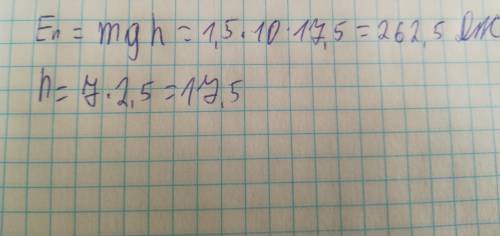 Eп = mgh = 1,5·10·17,5 = 262,5 Дж
h = 7·2,5 = 17,5